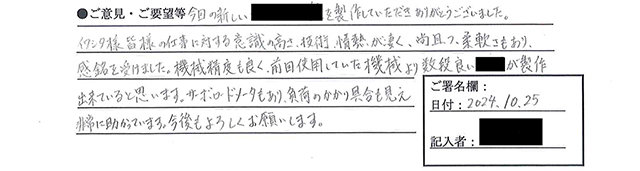 ●ご意見・ご要望等 今回の新しい を製作していただきありがとうございました。
イワシタ様皆様の仕事に対する意識の高さ、技術、情熱が凄く、尚且つ、柔軟さもあり、
感銘を受けました。機械精度も良く、前回使用していた機械より数段良い が製作
出来ていると思います。サーボロードメータもあり、負荷のかかり具合も見え
非常に助かっています。今後もよろしくお願いします。
ご署名欄:
日付: 2024.10.25
記入者: